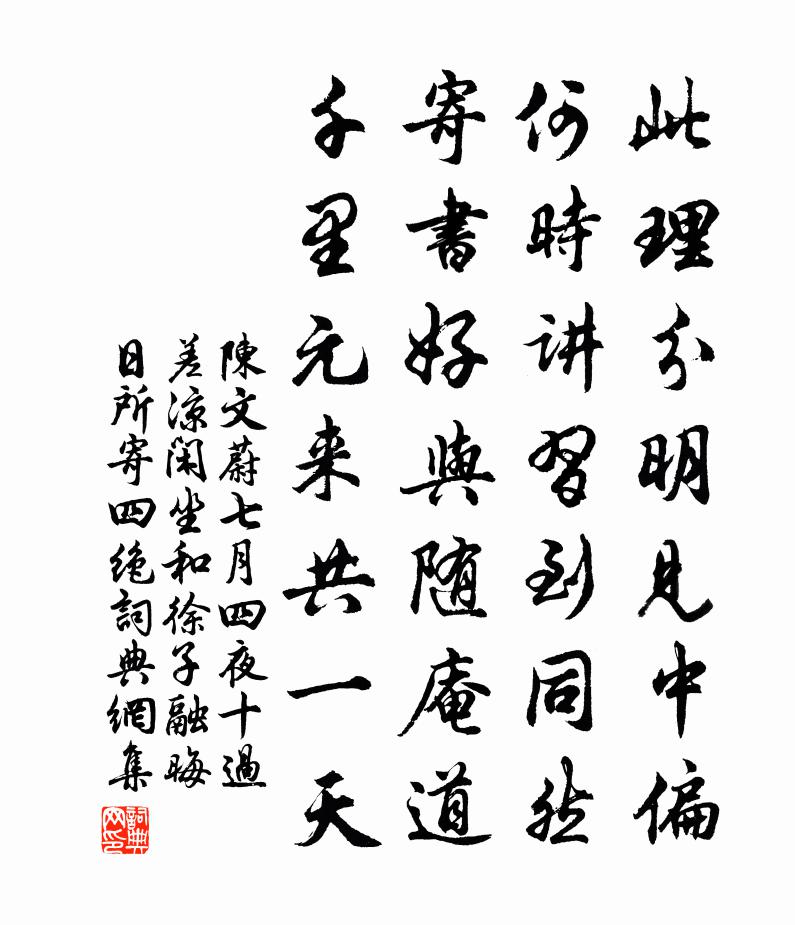 此理分明見中偏
何時讲習到同然
寄書好與随庵道
千里元来共一天
陳文蔚七月四夜十過
差凉閑坐和徐子融晦
日所寄四絶詞典網集
詞典网印